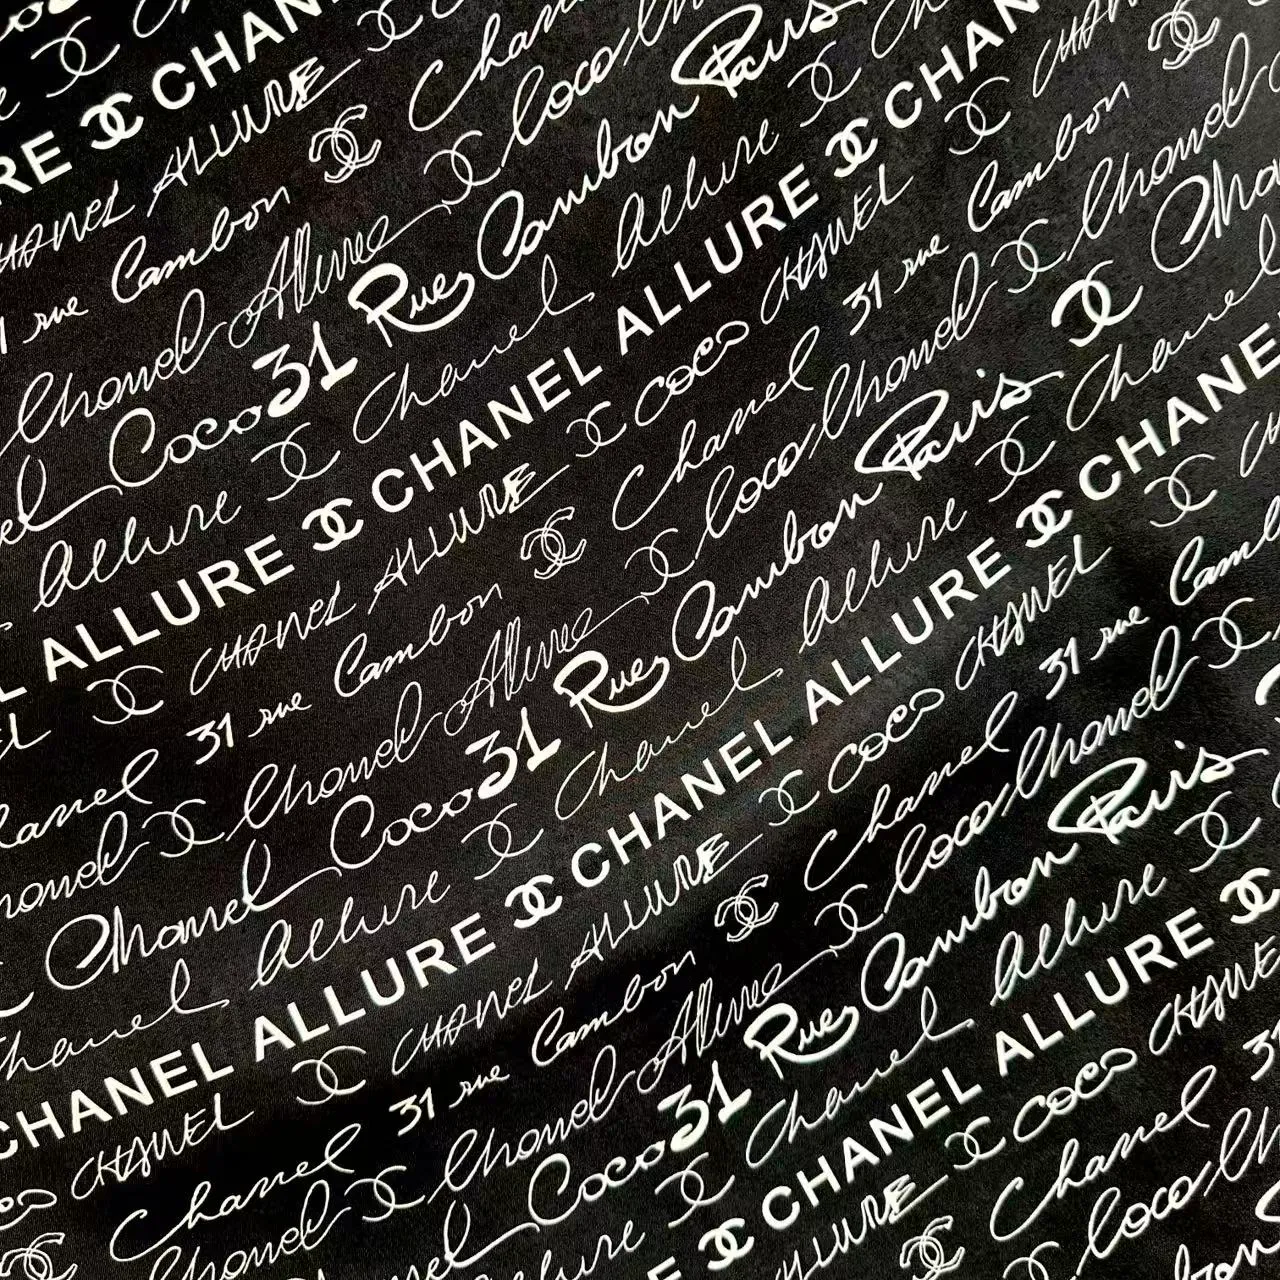 CHANEL
RE CHANEL
CHANEL ALLURE Chanel
31 rue Cambon Coco Chanel
Chanel Allure
Chanel Coco 31 Rue Cambon Paris
Allure Chanel Allure
ALLURE CHANEL ALLURE CHANEL
CHANEL ALLURE COCO CHANEL CHANEL
Chanel 31 rue Cambon Chanel 31 rue Cambon
Chanel Chanel Allure Coco Chanel Coco Chanel
Chanel Coco 31 Rue Cambon Paris Chanel
Chanel Allure Chanel Allure Chanel
CHANEL ALLURE CHANEL ALLURE CHANEL
COCO CHANEL CHANEL ALLURE COCO CHANEL
Chanel 31 rue Cambon Chanel 31 rue Cambon
Chanel Chanel Allure Coco Chanel
Coco 31 Rue Cambon Paris
Allure Chanel Allure
CHANEL ALLURE
ALLURE COCO CHANEL
Chanel 31
Coco Chanel